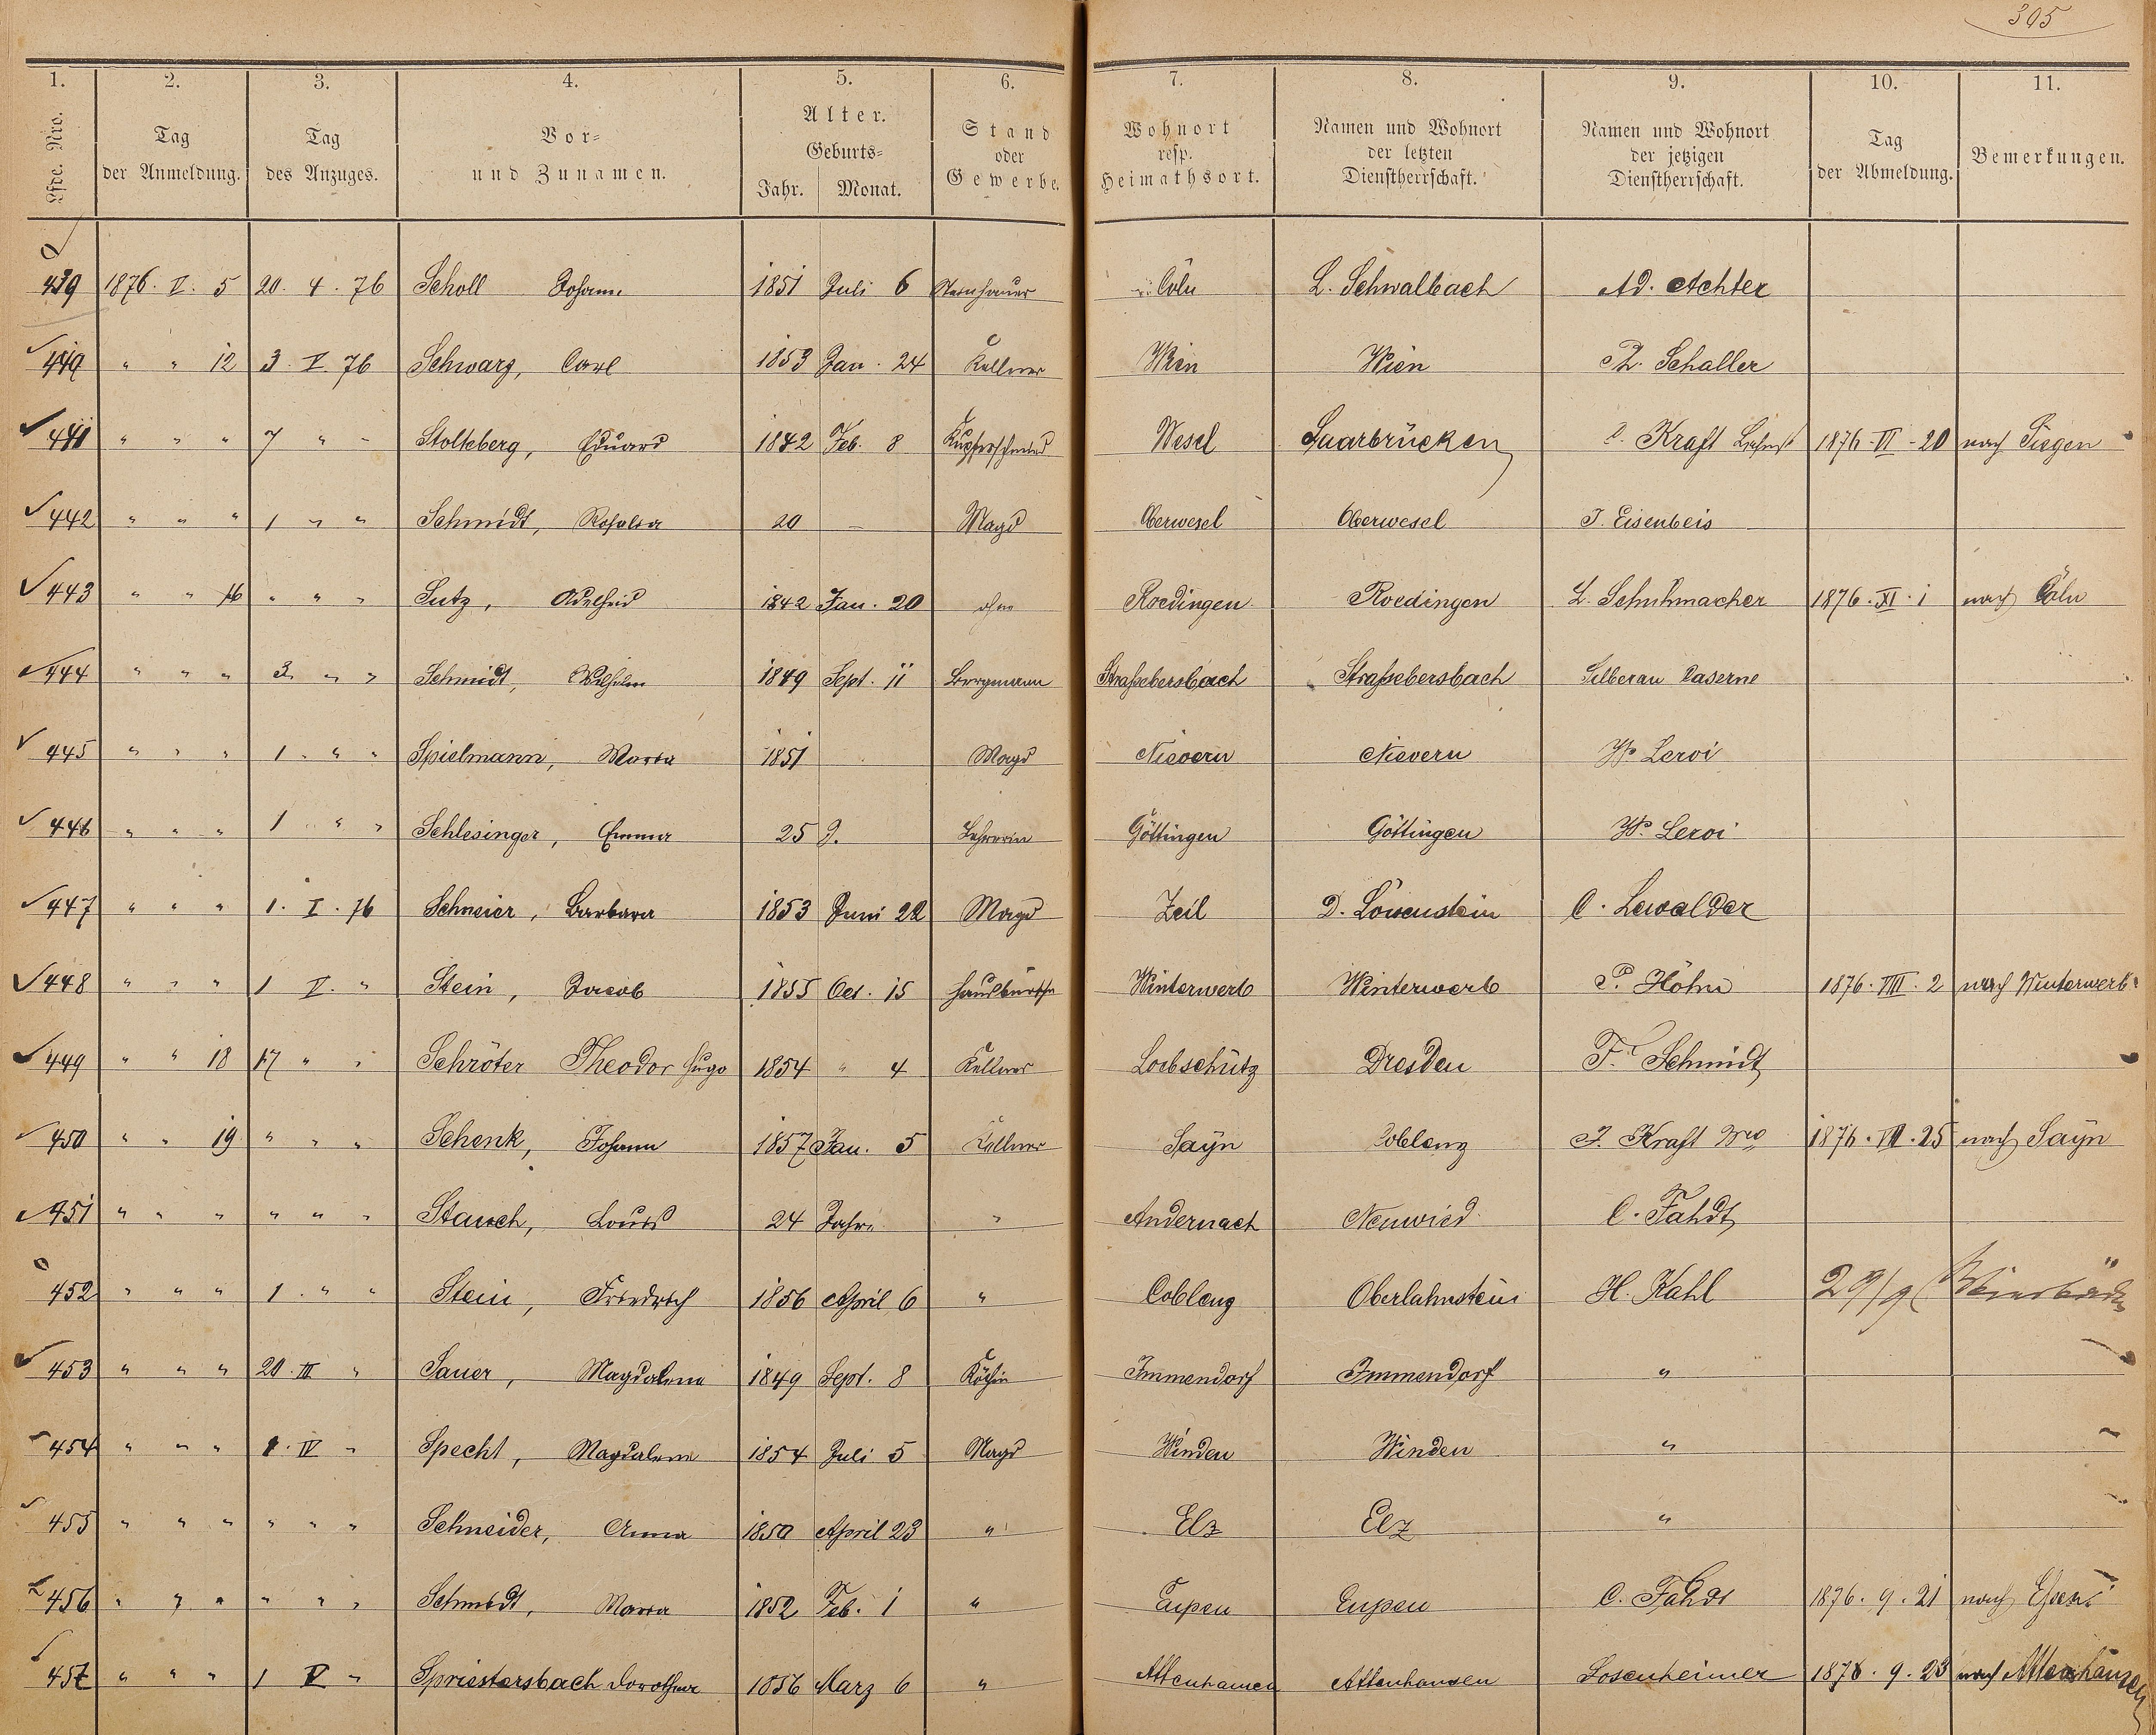 305
1. 2. 3. 4. 5. 6. 7. 8. 9. 10. 11.
Lfde. Nro. Tag der Anmeldung. Tag des Anzuges. Vor- und Zunamen. Alter. Geburts- Jahr. Monat. Stand oder Gewerbe. Wohnort resp. Heimathsort. Namen und Wohnort der letzten Dienstherrschaft. Namen und Wohnort der jetzigen Dienstherrschaft. Tag der Abmeldung. Bemerkungen.
439 1876. V. 5 20. 4. 76 Scholl Johann 1851 Juli 6 Steinhauer Cöln L. Schwalbach Ad. Achter
440 " " 12 3. V. 76 Schwarz, Carl 1853 Jan. 24 Kellner Wien Wien Schaller
441 " " " 7 " " Stolteberg, Eduard 1842 Feb. 8 Kupferschmied Wesel Saarbrücken Kraft 1876. VI - 20 nach Siegen
442 " " " 1 " " Schmidt, Rosalia 20 — Magd Oberwesel Oberwesel J. Eisenbeis
443 " " 16 " " " Sutz, Adelheid 1842 Jan. 20 ohne Roedingen Roedingen L. Schuhmacher 1876. XI. 1 nach Cöln
444 " " " 3 " " Schmidt, Wilhelm 1849 Sept. 11 Bergmann Straßebersbach Straßebersbach Silberau Caserne
445 " " " 1. " " Spielmann, Maria 1851 Magd Nievern Nievern Leroi
446 " " " 1 " " Schlesinger, Emma 25 J. Lehrerin Göttingen Göttingen Leroi
447 " " " 1. I. 76 Schneier, Barbara 1853 Juni 22 Magd Zeil D. Löwenstein C. Lewalder
448 " " " 1 V. " Stein, Jacob 1855 Oct. 15 Hausbursche Winterwerb Winterwerb P. Höhn 1876. VIII. 2 nach Winterwerb
449 " " 18 17 " " Schröter Theodor Hugo 1854 " 4 Kellner Loebschütz Dresden Fr. Schmidt
450 " " 19 " " " Schenk, Johann 1857 Jan. 5 Kellner Sayn Coblenz J. Kraft 1876. VIII. 25 nach Sayn
451 " " " " " " Stauch, Louis 24 Jahre " Andernach Neuwied C. Fahdt
452 " " " 1. " " Stein, Friedrich 1856 April 6 " Coblenz Oberlahnstein H. Kahl 29/9
453 " " " 20. III " Sauer, Magdalena 1849 Sept. 8 Köchin Immendorf Immendorf "
454 " " " 1. IV " Specht, Magdalena 1854 Juli 5 Magd Winden Winden "
455 " " " " " " Schneider, Anna 1850 April 23 " Elz Elz "
456 " " " " " " Schmidt, Maria 1852 Feb. 1 " Eupen Eupen C. Fahdt 1876. 9. 21 nach
457 " " " 1 V " Spriestersbach Dorothea 1856 Marz 6 " Attenhausen Attenhausen Sosenheimer 1876. 9. 23 nach Attenhausen